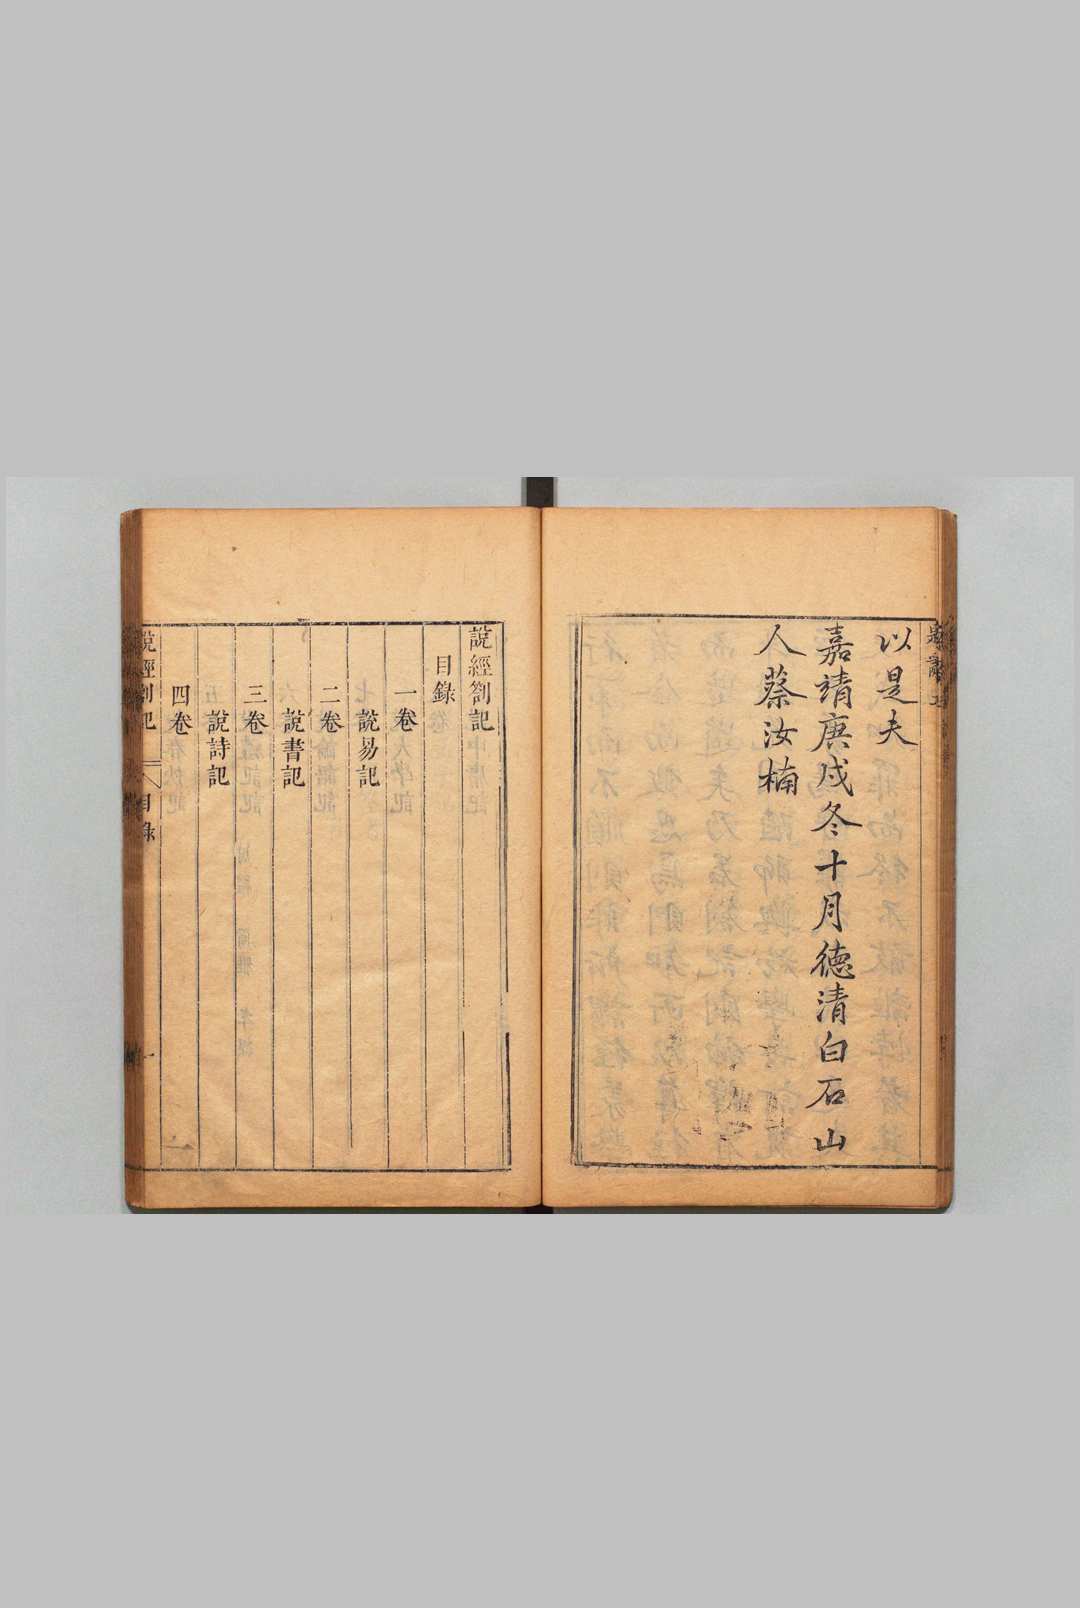 以是夫
嘉靖庚戌冬十月德清白石山
人蔡汝楠
說經劄記
目錄
一卷
說易記
二卷
說書記
三卷
說詩記
四卷
說經劄記
目錄
一